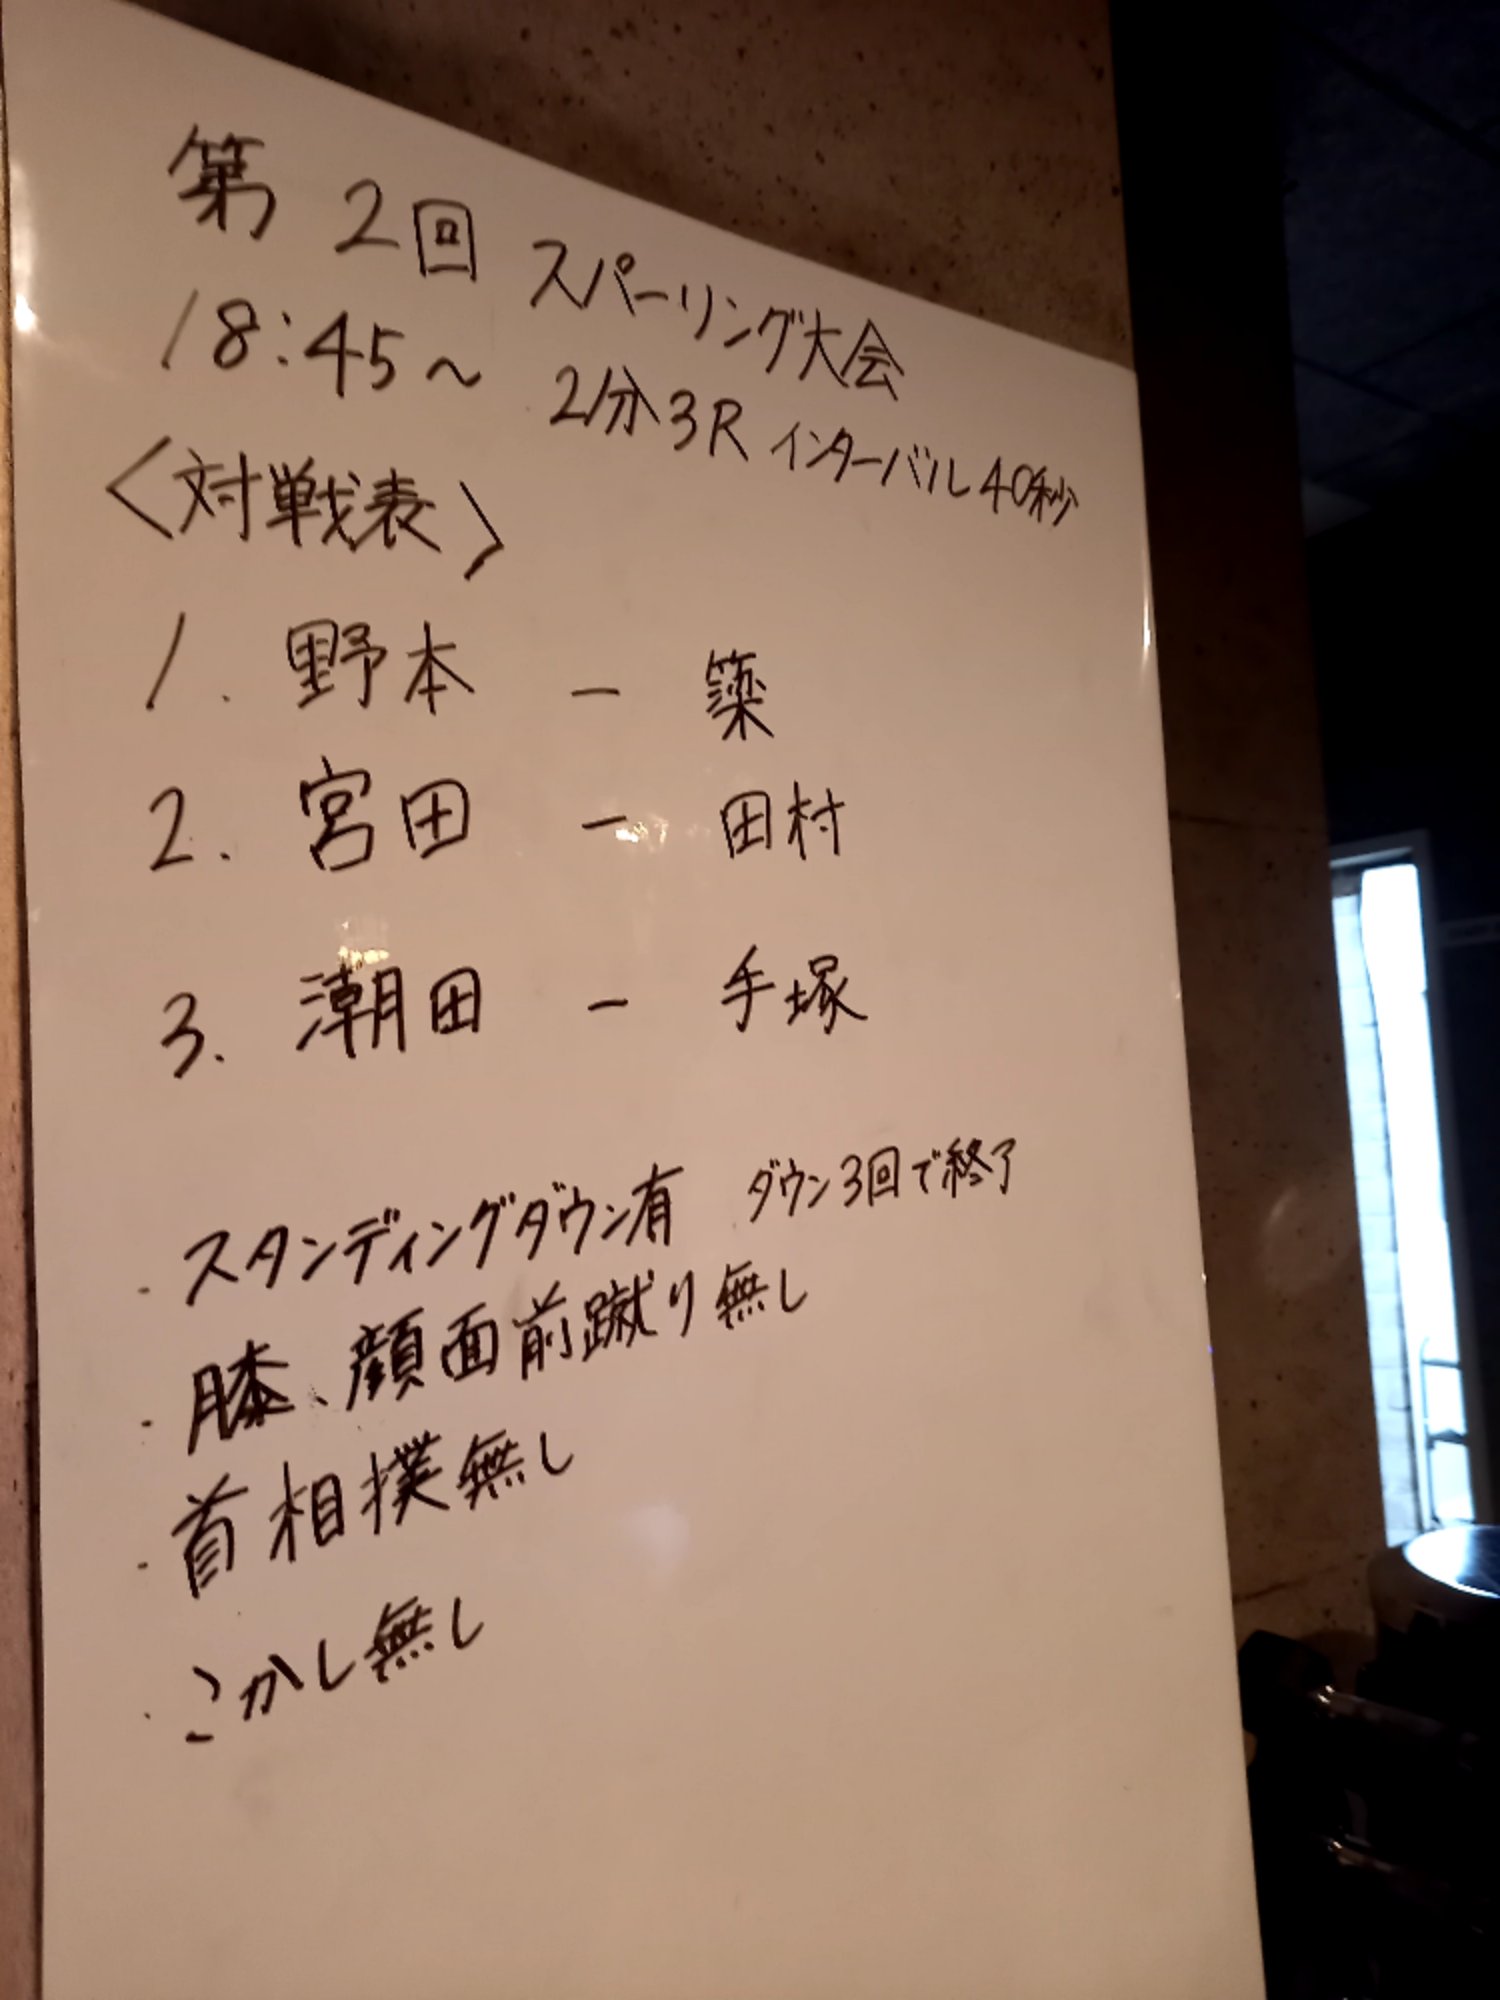 第2回 スパーリング大会
18:45～ 2分3R インターバル40秒
〈対戦表〉
1. 野本 － 築
2. 宮田 － 田村
3. 潮田 － 手塚
・スタンディングダウン有 ダウン3回で終了
・膝、顔面前蹴り無し
・首相撲無し
・こかし無し